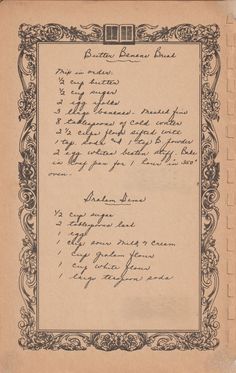 Butter Banana Bread
Mix in order.
½ cup butter
½ cup sugar
2 egg yolks
3 large bananas - Mashed fine
8 tablespoons of cold water
2 ½ cups flour sifted with
1 tsp. soda & 1 tsp B. powder
2 egg whites beaten stiff. Bake
in loaf pan for 1 hour in 350°
oven.
Graham Gems
½ cup sugar
2 tablespoons lard
1 egg
1 cup sour milk & cream
1 cup graham flour
1 cup white flour
1 large teaspoon soda